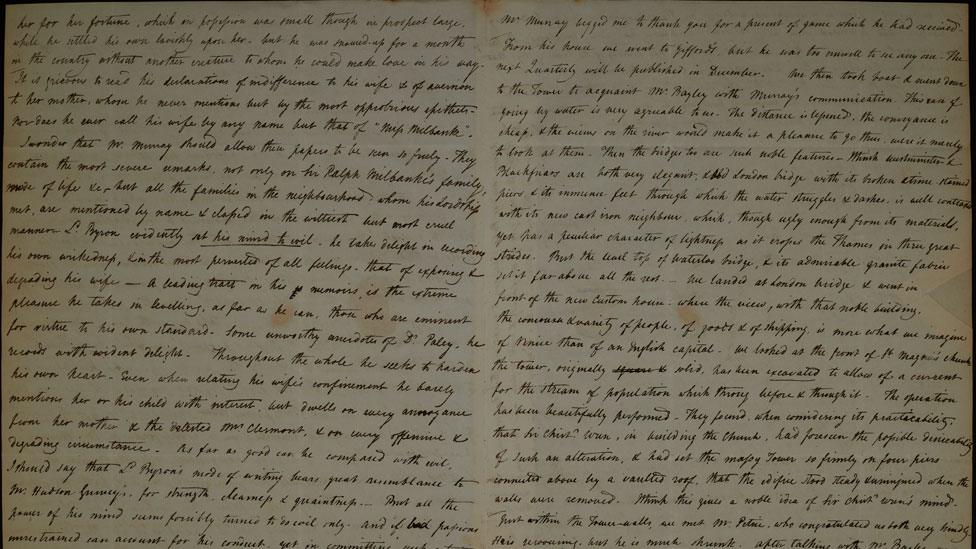 her for her fortune, which in possession was small though in prospect large,
while he settled his own lavishly upon her. but he was snowed-up for a month
in the country without another creature to whom he could make love in his way.
It is grievous to read his declarations of indifference to his wife & of aversion
to her mother, whom he never mentions but by the most opprobrious epithets.
Nor does he ever call his wife by any name but that of "Miss Milbanke".
I wonder that Mr. Murray should allow these papers to be seen so freely. They
contain the most severe remarks, not only on Sir Ralph Milbanke's family,
mode of life &c, but all the families in the neighbourhood whom his Lordship
met, are mentioned by name & classed in the wittiest but most cruel
manner. Ld. Byron evidently set his mind to evil. he takes delight in recording
his own wickedness, & in the most perverted of all feelings. that of exposing &
degrading his wife — A leading trait in his memoirs, is the extreme
pleasure he takes in levelling, as far as he can, those who are eminent
for virtue to his own standard. Some unworthy anecdotes of Dr. Paley, he
records with evident delight. Throughout the whole he seeks to harden
his own heart. Even when relating his wife's confinement he barely
mentions her or his child with interest, but dwells on every annoyance
from her mother & the detested Mrs Clermont, & on every offensive &
degrading circumstance. As far as good can be compared with evil,
I should say that Ld. Byron's mode of writing bears great resemblance to
Mr. Hudson Gurney's, for strength, clearness & quaintness. But all the
power of his mind seems forcibly turned to evil only. and if bad passions
unrestrained can account for his conduct, yet in committing
Mr Murray begged me to thank you for a present of game which he had received.
From his house we went to Giffords, but he was too unwell to see any one. The
next Quarterly will be published in December. We then took boat & went down
to the Tower to acquaint Mr. Bayley with Murray's communication. This way of
going by water is very agreeable to us. The distance is lessened, the conveyance is
cheap, & the views on the river would make it a pleasure to go there, were it merely
to look at them. Then the bridges too are such noble features – Westminster &
Blackfriars are both very elegant, & old London bridge with its broken stained
piers & its immense feet through which the water struggles & dashes, is well contrasted
with its new cast iron neighbour, which, though ugly enough from its materials,
yet has a peculiar character of lightness as it crosses the Thames in three great
strides. But the level top of Waterloo bridge, & its admirable granite fabric
set it far above all the rest. – We landed at London bridge & went in
front of the new Custom house. where the view, with that noble building,
the concourse & variety of people, of goods & of shipping, is more what we imagine
of Venice than of an English capital. We looked at the front of St Magnus church
the tower, originally solid, has been excavated to allow of a current
for the stream of population which throng before & through it. The operation
has been beautifully performed. They found, when considering its practicability,
that Sir Christr Wren, in building the Church, had foreseen the possible desireability
of such an alteration, & had set the massy Tower so firmly on four piers
connected above by a vaulted roof, that the edifice stood steady uninjured when the
walls were removed. I think this gives a noble idea of Sir Christr Wren's mind.
Just within the Tower-walls, we met Mr. Petrie, who congratulated us both very kindly
He is recovering, but he is much shrunk. After talking with Mr. Bayley